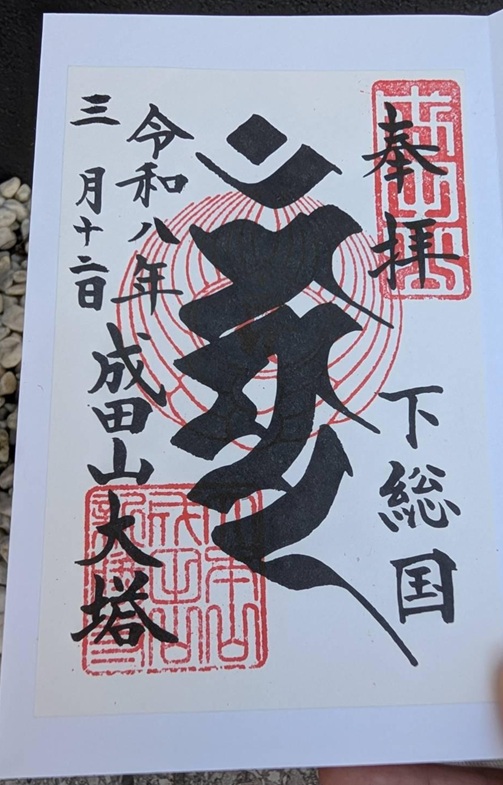 奉拝
下総国
令和八年
三月十二日
成田山大塔